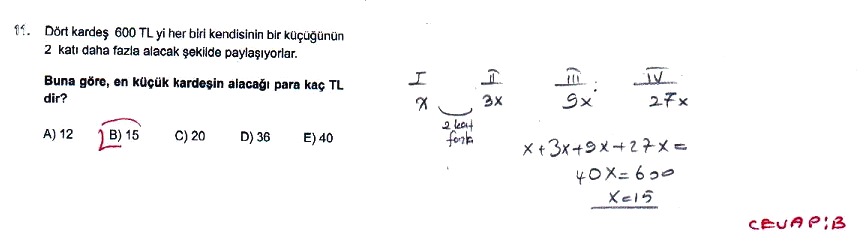 11. Dört kardeş 600 TL yi her biri kendisinin bir küçüğünün
2 katı daha fazla alacak şekilde paylaşıyorlar.
Buna göre, en küçük kardeşin alacağı para kaç TL
dir?
A) 12 B) 15 C) 20 D) 36 E) 40
I II III IV
x 3x 9x 27x
2 kat
fazla
x+3x+9x+27x=
40x=600
x=15
CEVAP:B